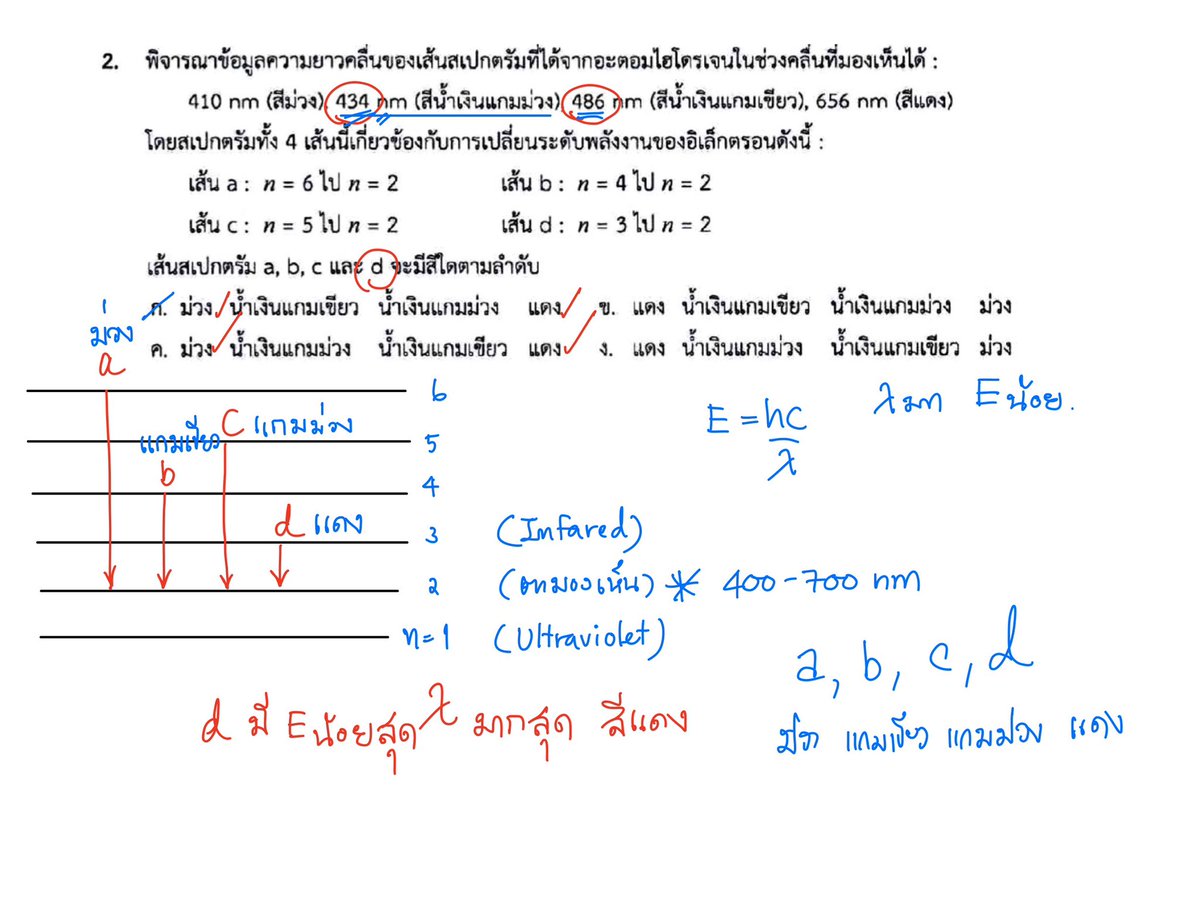 2. พิจารณาข้อมูลความยาวคลื่นของเส้นสเปกตรัมที่ได้จากอะตอมไฮโดรเจนในช่วงคลื่นที่มองเห็นได้ :
410 nm (สีม่วง), 434 nm (สีน้ำเงินแกมม่วง), 486 nm (สีน้ำเงินแกมเขียว), 656 nm (สีแดง)
โดยสเปกตรัมทั้ง 4 เส้นนี้เกี่ยวข้องกับการเปลี่ยนระดับพลังงานของอิเล็กตรอนดังนี้ :
เส้น a : n = 6 ไป n = 2 เส้น b : n = 4 ไป n = 2
เส้น c : n = 5 ไป n = 2 เส้น d : n = 3 ไป n = 2
เส้นสเปกตรัม a, b, c และ d จะมีสีใดตามลำดับ
ก. ม่วง น้ำเงินแกมเขียว น้ำเงินแกมม่วง แดง ข. แดง น้ำเงินแกมเขียว น้ำเงินแกมม่วง ม่วง
ค. ม่วง น้ำเงินแกมม่วง น้ำเงินแกมเขียว แดง ง. แดง น้ำเงินแกมม่วง น้ำเงินแกมเขียว ม่วง
ม่วง
a
6
E = hc/λ
λ มาก E น้อย.
แกมเขียว C แกมม่วง 5
b 4
d แดง 3 (Infared)
2 (ตามองเห็น) * 400-700 nm
n=1 (Ultraviolet)
a, b, c, d
d มี E น้อยสุด λ มากสุด สีแดง
ม่วง แกมเขียว แกมม่วง แดง